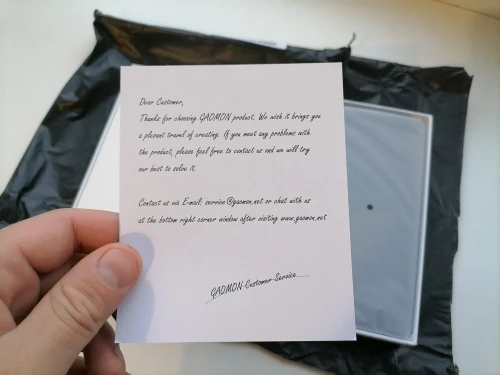 Dear Customer,
Thanks for choosing GAOMON product. We wish it brings you
a plesant travel of creating. If you meet any problems with
the product, please feel free to contact us and we will try
our best to solve it.
Contact us via E-mail: service@gaomon.net or chat with us
at the bottom right corner window after visiting www.gaomon.net
GAOMON Customer Service